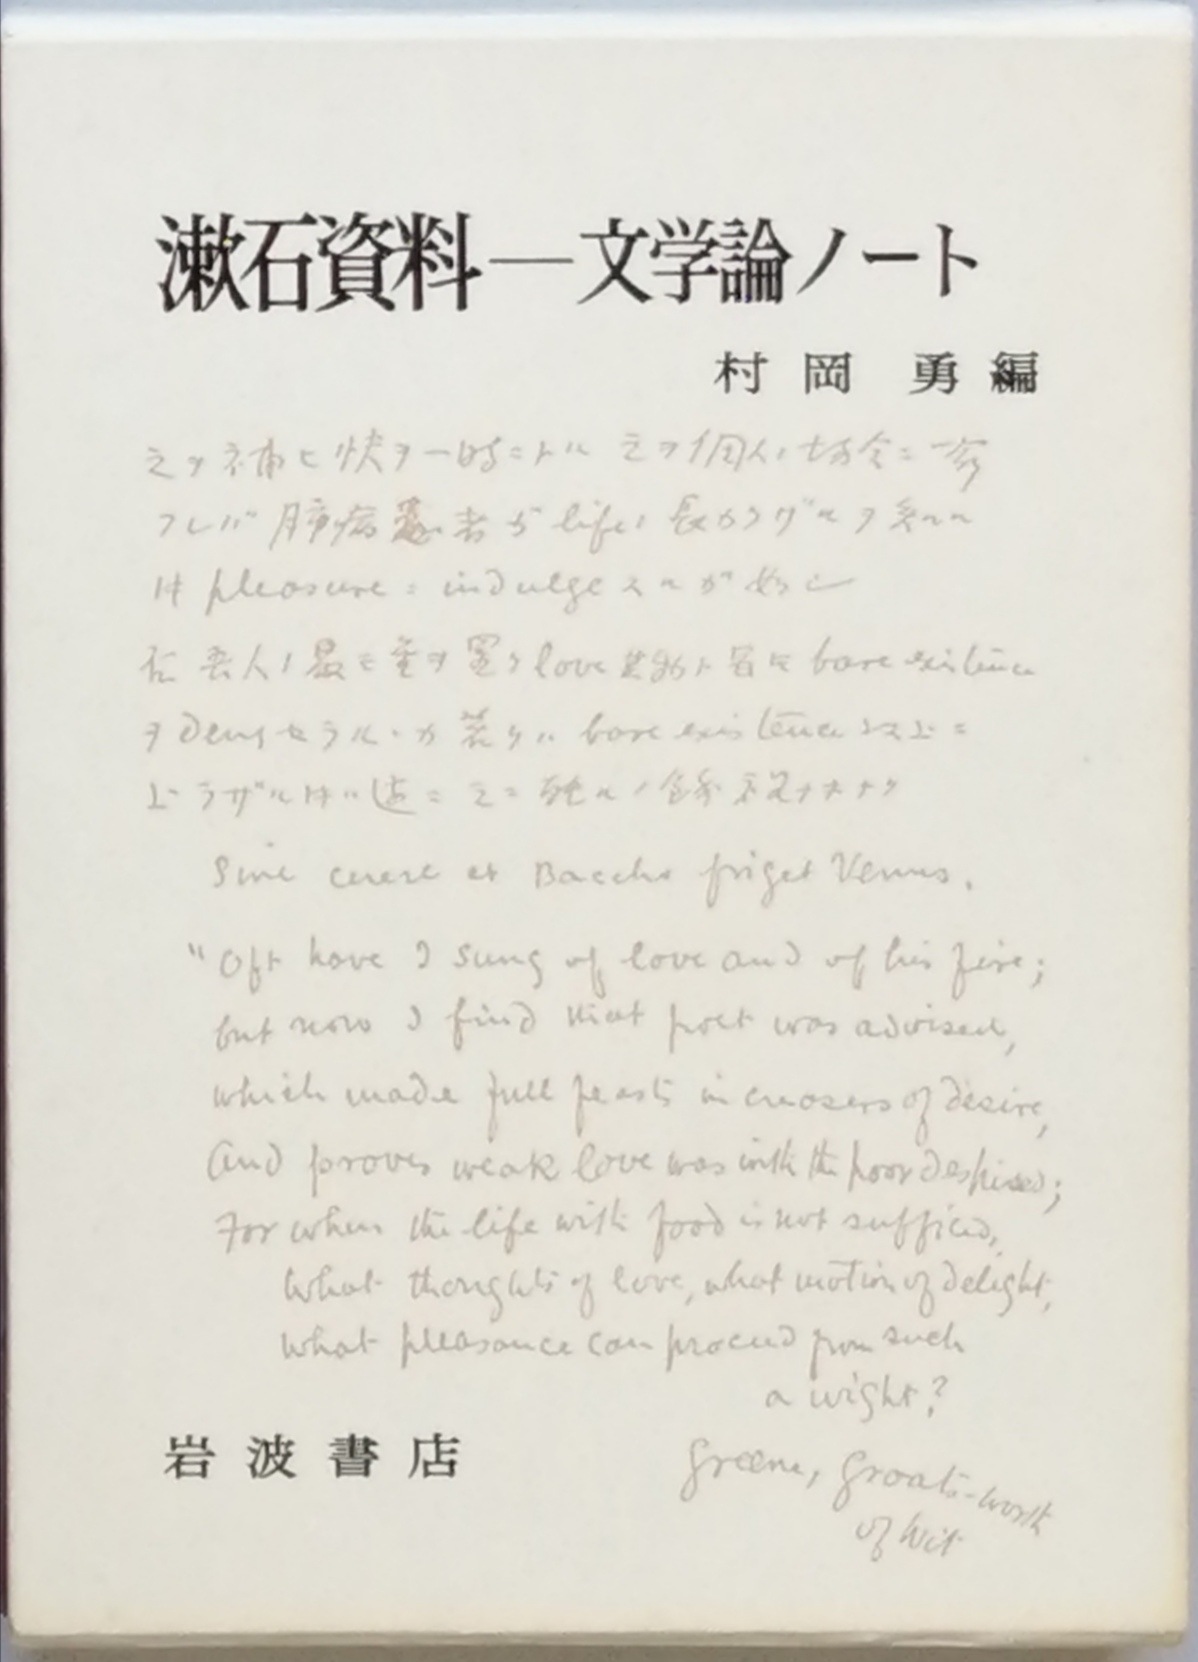 漱石資料—文学論ノート
村岡 勇編
之ヲ補ヒ快ヲ一時ニトル 之ヲ個人ノ場合ニ
レバ肺病患者ガ lifeノ長カラザルヲ
pleasureニ indulgeスルガ如シ
右吾人ノ最モ重ヲ置ク love bare existence
ヲ denyセラルヽカ若クハ bare existence 以上ニ
上ラザル
Sine cerere et Baccho friget Venus.
"Oft have I sung of love and of his fire;
but now I find that poet was advised,
which made full feasts increasers of desire,
And proves weak love was with the poor despised;
For when the life with food is not sufficed,
What thoughts of love, what motion of delight,
what pleasance can proceed from such
a wight?
岩波書店
Greene, Groats-worth
of Wit